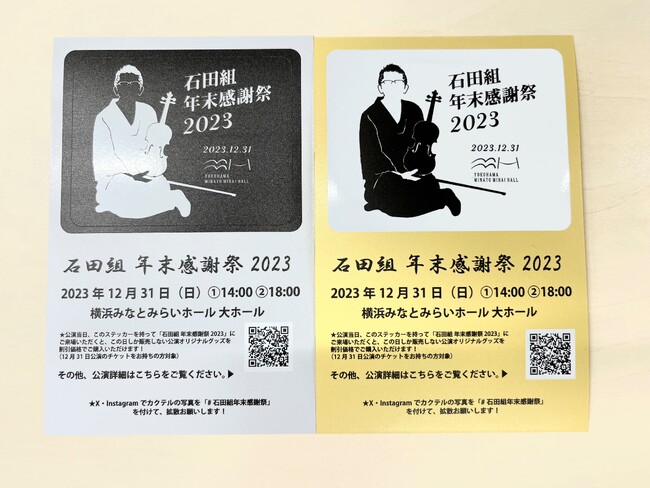 石田組
年末感謝祭
2023
2023.12.31
YOKOHAMA
MINATO MIRAI HALL
石田組 年末感謝祭 2023
2023 年 12 月 31 日（日）①14:00 ②18:00
横浜みなとみらいホール 大ホール
★公演当日、このステッカーを持って「石田組 年末感謝祭 2023」に
ご来場いただくと、この日しか販売しない公演オリジナルグッズを
割引価格でご購入いただけます！
(12 月 31 日公演のチケットをお持ちの方対象)
その他、公演詳細はこちらをご覧ください。▶
★X・Instagram でカクテルの写真を「# 石田組年末感謝祭」
を付けて、拡散お願いします！
石田組
年末感謝祭
2023
2023.12.31
YOKOHAMA
MINATO MIRAI HALL
石田組 年末感謝祭 2023
2023 年 12 月 31 日（日）①14:00 ②18:00
横浜みなとみらいホール 大ホール
★公演当日、このステッカーを持って「石田組 年末感謝祭 2023」に
ご来場いただくと、この日しか販売しない公演オリジナルグッズを
割引価格でご購入いただけます！
(12 月 31 日公演のチケットをお持ちの方対象)
その他、公演詳細はこちらをご覧ください。▶
★X・Instagram でカクテルの写真を「# 石田組年末感謝祭」
を付けて、拡散お願いします！